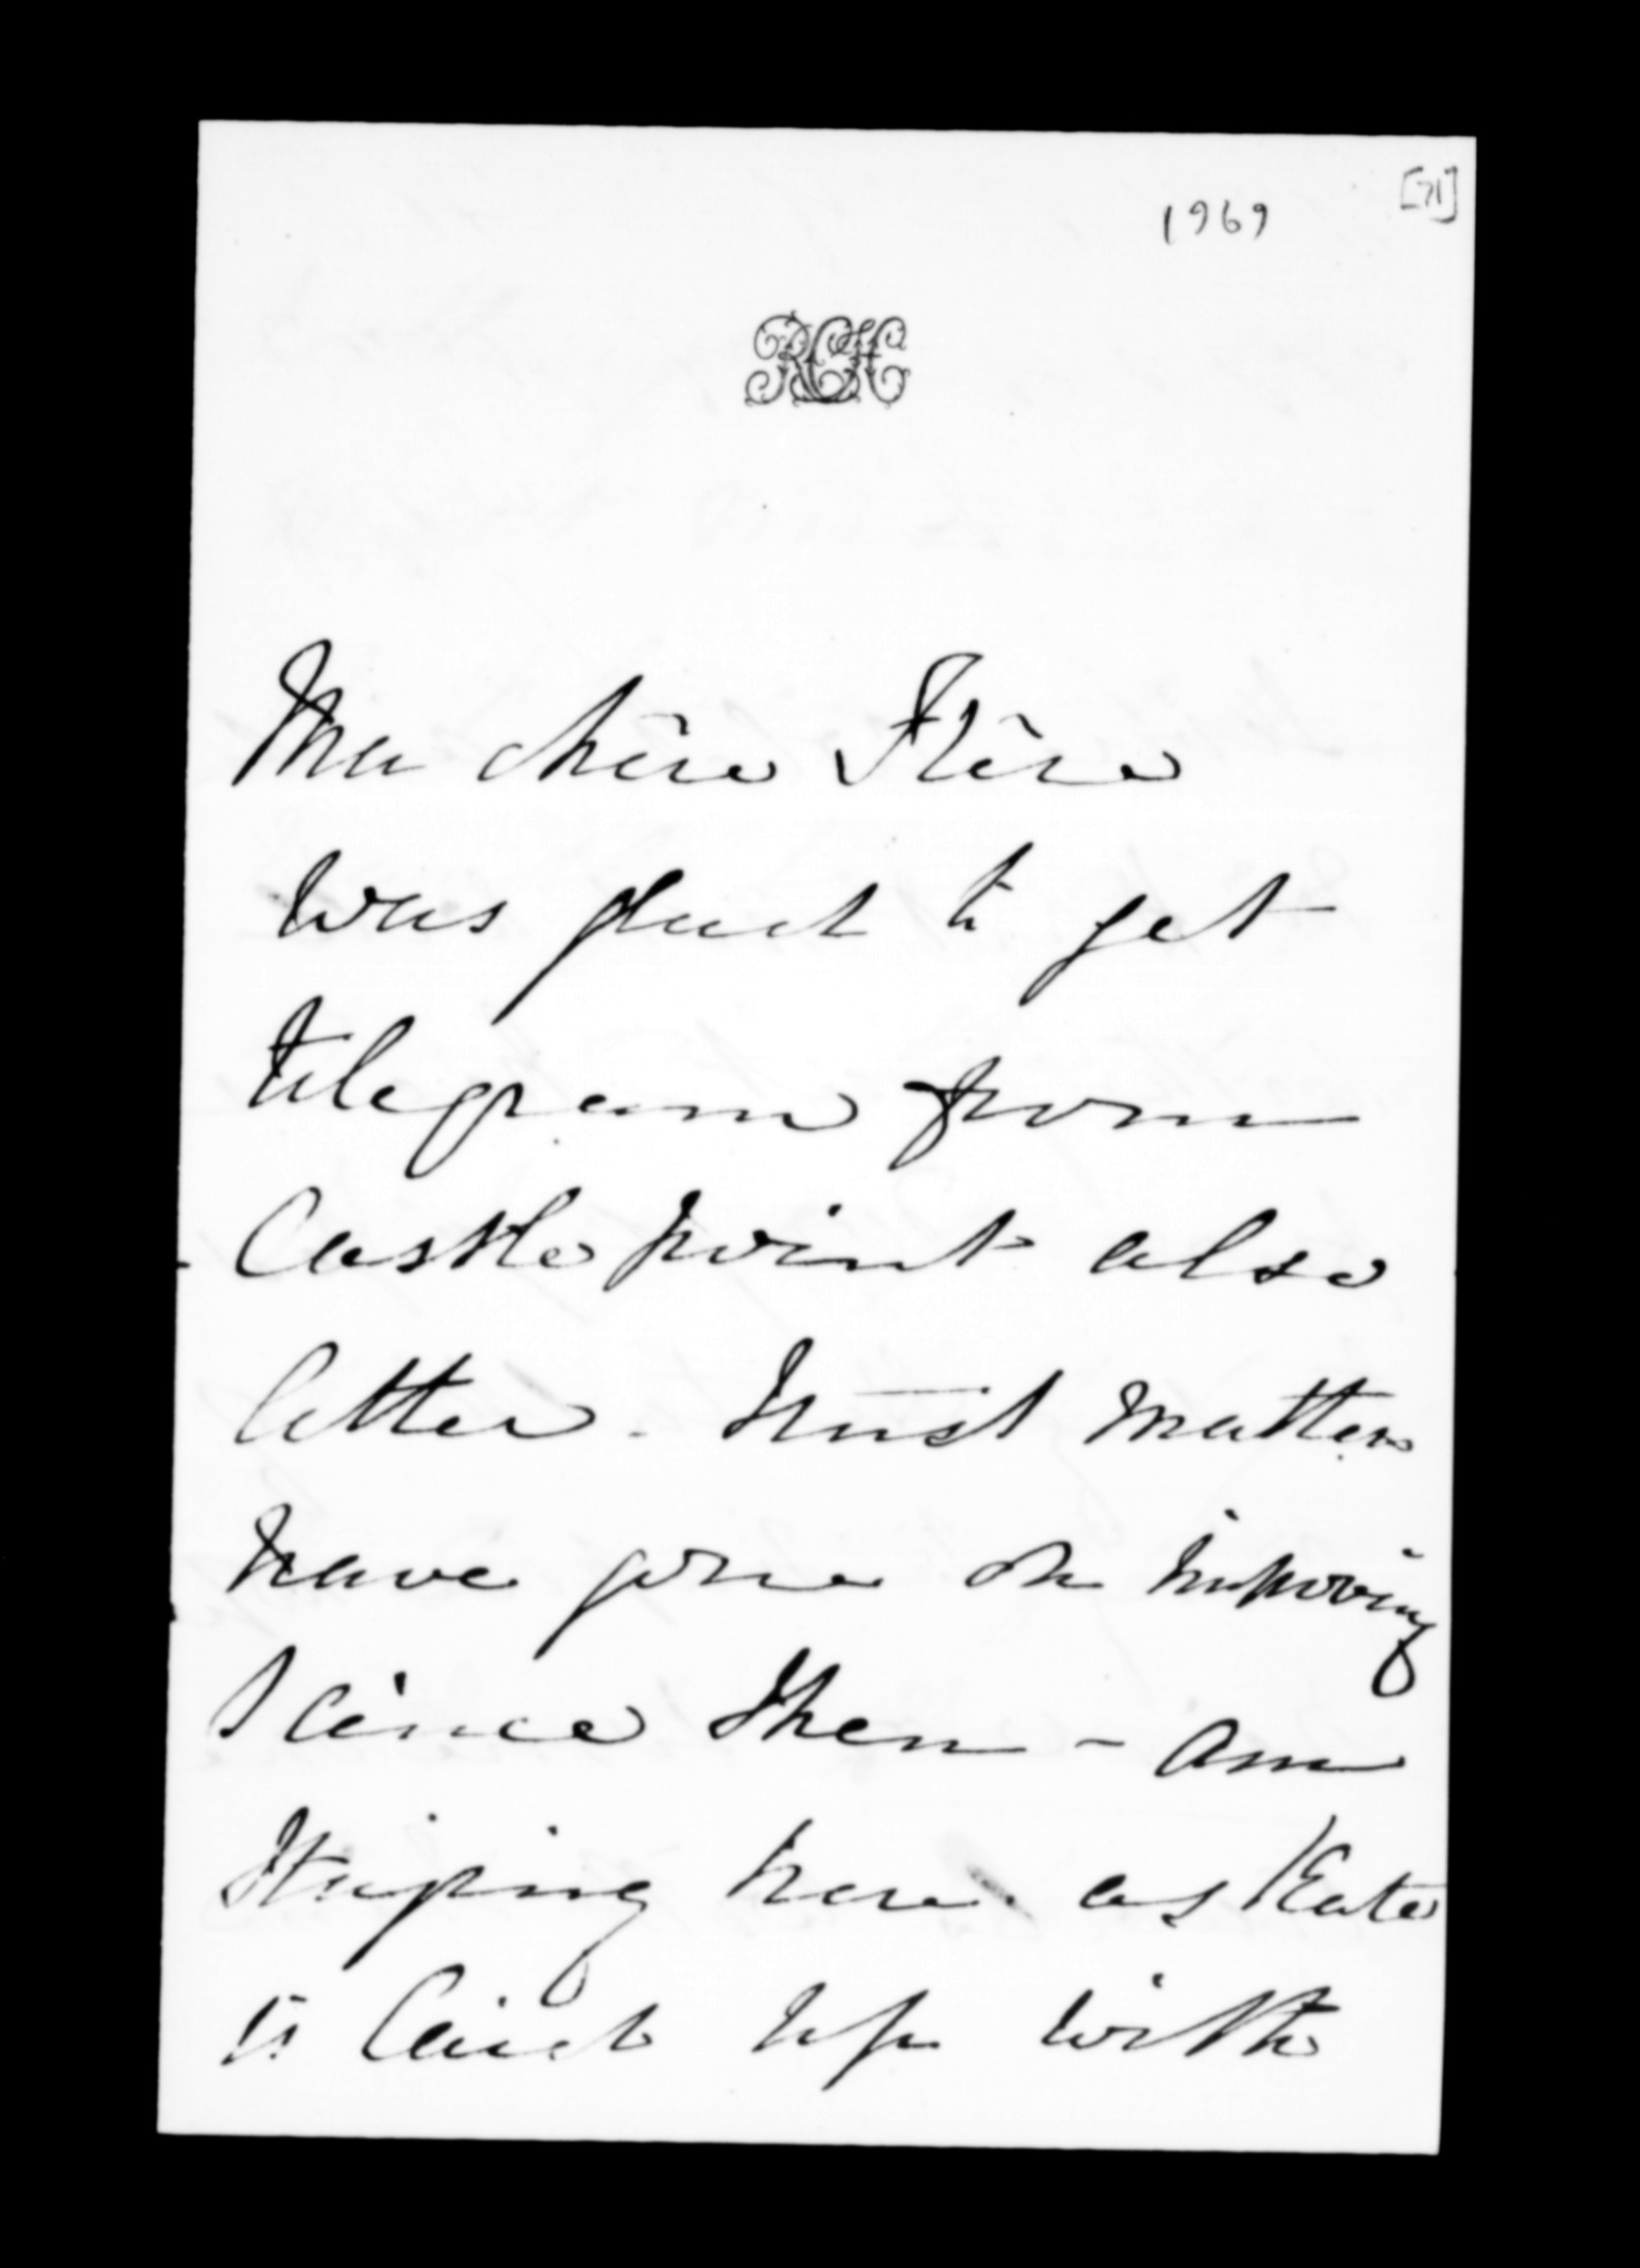 [71]
1969
RGH
Ma chère Frère
was glad to get
telegram from
Castlepoint also
letter. trust matters
have gone on improving
scince then - am
stuping here as Kate
is laid up with